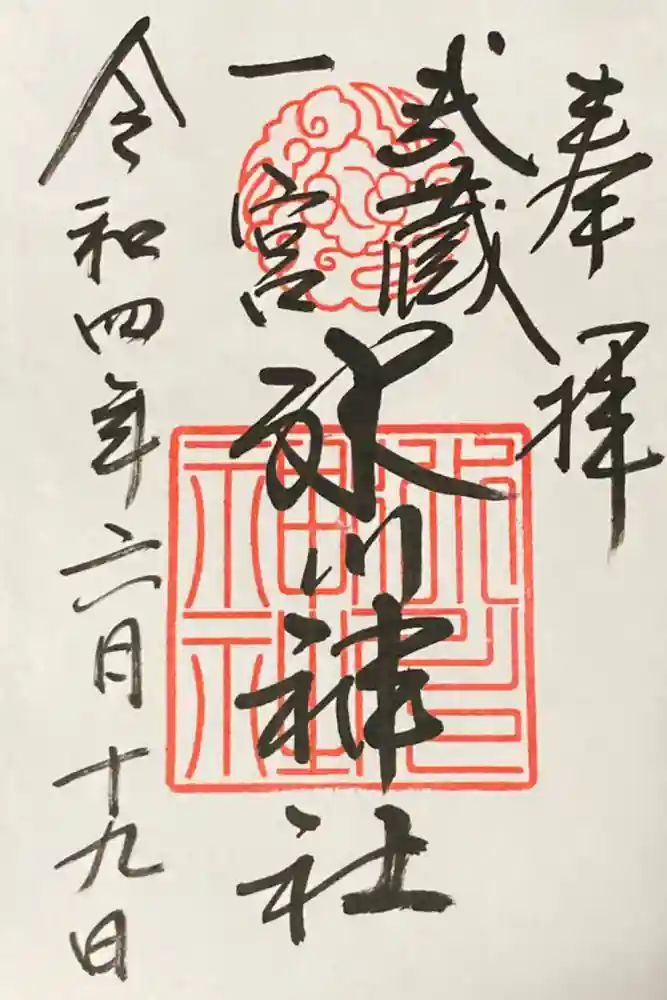 奉拝
武蔵
一宮
氷川神社
令和四年六月十九日